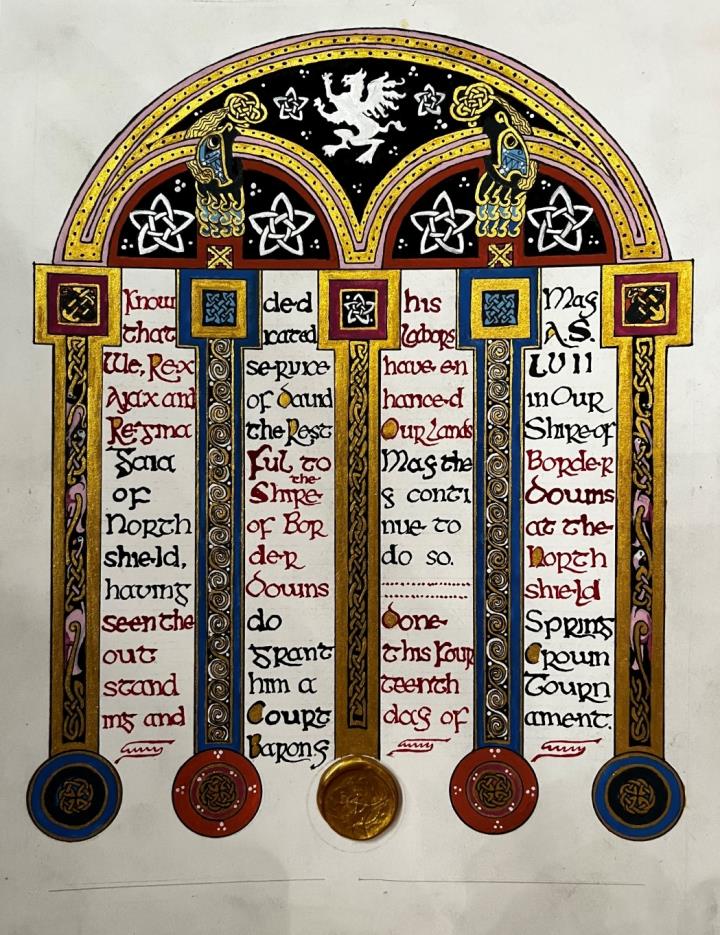 Know
that
We, Rex
Ajax and
Regina
Gaia
of
North
shield,
having
seen the
out
stand
ing and
ded
icated
service
of David
the Rest
Ful to
the
Shire
of Bor
der
downs
do
grant
him a
Court
Barony
his
labors
have en
hanced
Our Lands
May the
y conti
nue to
do so.
Done
this Four
teenth
day of
May
A.S.
LVII
in Our
Shire of
Border
downs
at the
North
shield
Spring
Crown
Tourn
ament.